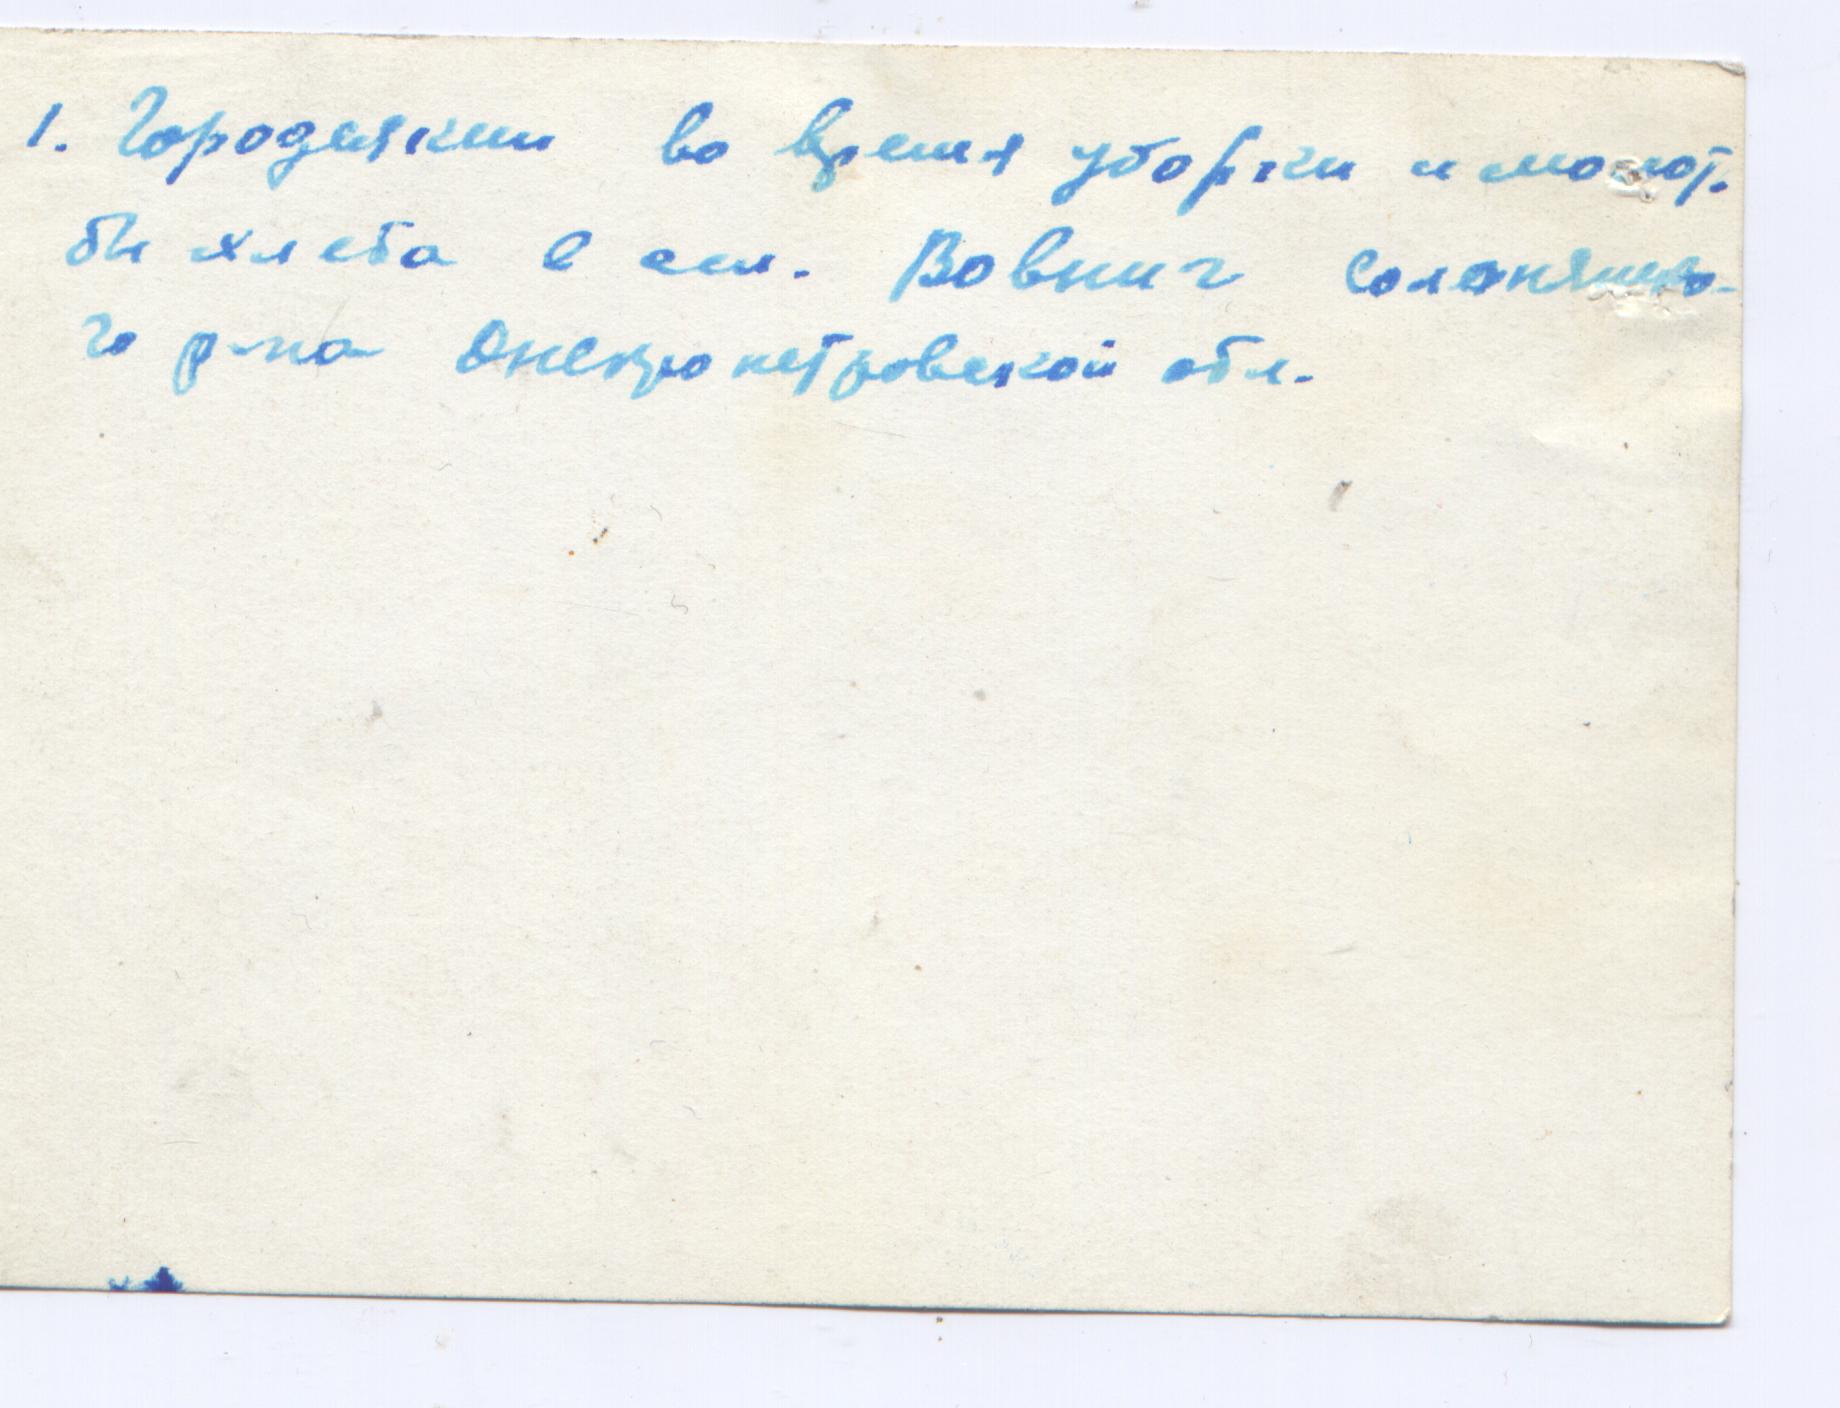 1. Городецкий во время уборки и молот.
бы хлеба в сел. Вовниг Солонянско-
го р-на Днепропетровской обл.